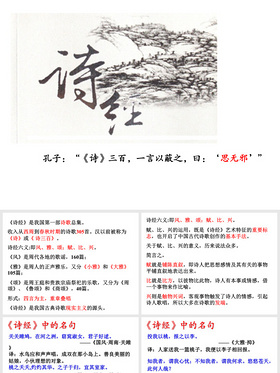 诗经
孔子：“《诗》三百，一言以蔽之，曰：‘思无邪’”
《诗经》是我国第一部诗歌总集。
收入从西周到春秋时期的诗歌305首，汉以前被称为《诗》或《诗三百》。
诗经六义：即风、雅、颂，赋、比、兴。
《风》是周代各地的歌谣，160篇；
《雅》是周人的正声雅乐，又分《小雅》和《大雅》105篇；
《颂》是周王庭和贵族宗庙祭祀的乐歌，又分为《周颂》、《鲁颂》和《商颂》，40篇。
形式：四言为主，重章叠唱
《诗经》是我国古典诗歌现实主义的源头。
诗经六义：即风、雅、颂，赋、比、兴。
赋、比、兴的运用，既是《诗经》艺术特征的重要标志，也开启了中国古代诗歌创作的基本手法。
关于赋、比、兴的意义，历来说法众多。
简言之，
赋就是铺陈直叙，即诗人把思想感情及其有关的事物平铺直叙地表达出来。
比就是比方，以彼物比此物，诗人有本事或情感，借一个事物来作比喻。
兴则是触物兴词，客观事物触发了诗人的情感，引起诗人歌唱，所以大多在诗歌的发端。
《诗经》中的名句
关关雎鸠，在河之洲。窈窕淑女，君子好逑。
——《国风·周南·关雎》
译：水鸟应和声声唱，成双在那小岛上。善良美丽的姑娘，小伙理想的对象。
桃之夭夭，灼灼其华。之子于归，宜其室家。
《诗经》中的名句
投我以桃，报之以李。
——《大雅·抑》
译：人家送我一篮桃子，我便以李子相回报。
知我者，谓我心忧；不知我者，谓我何求。悠悠苍天，此何人哉？